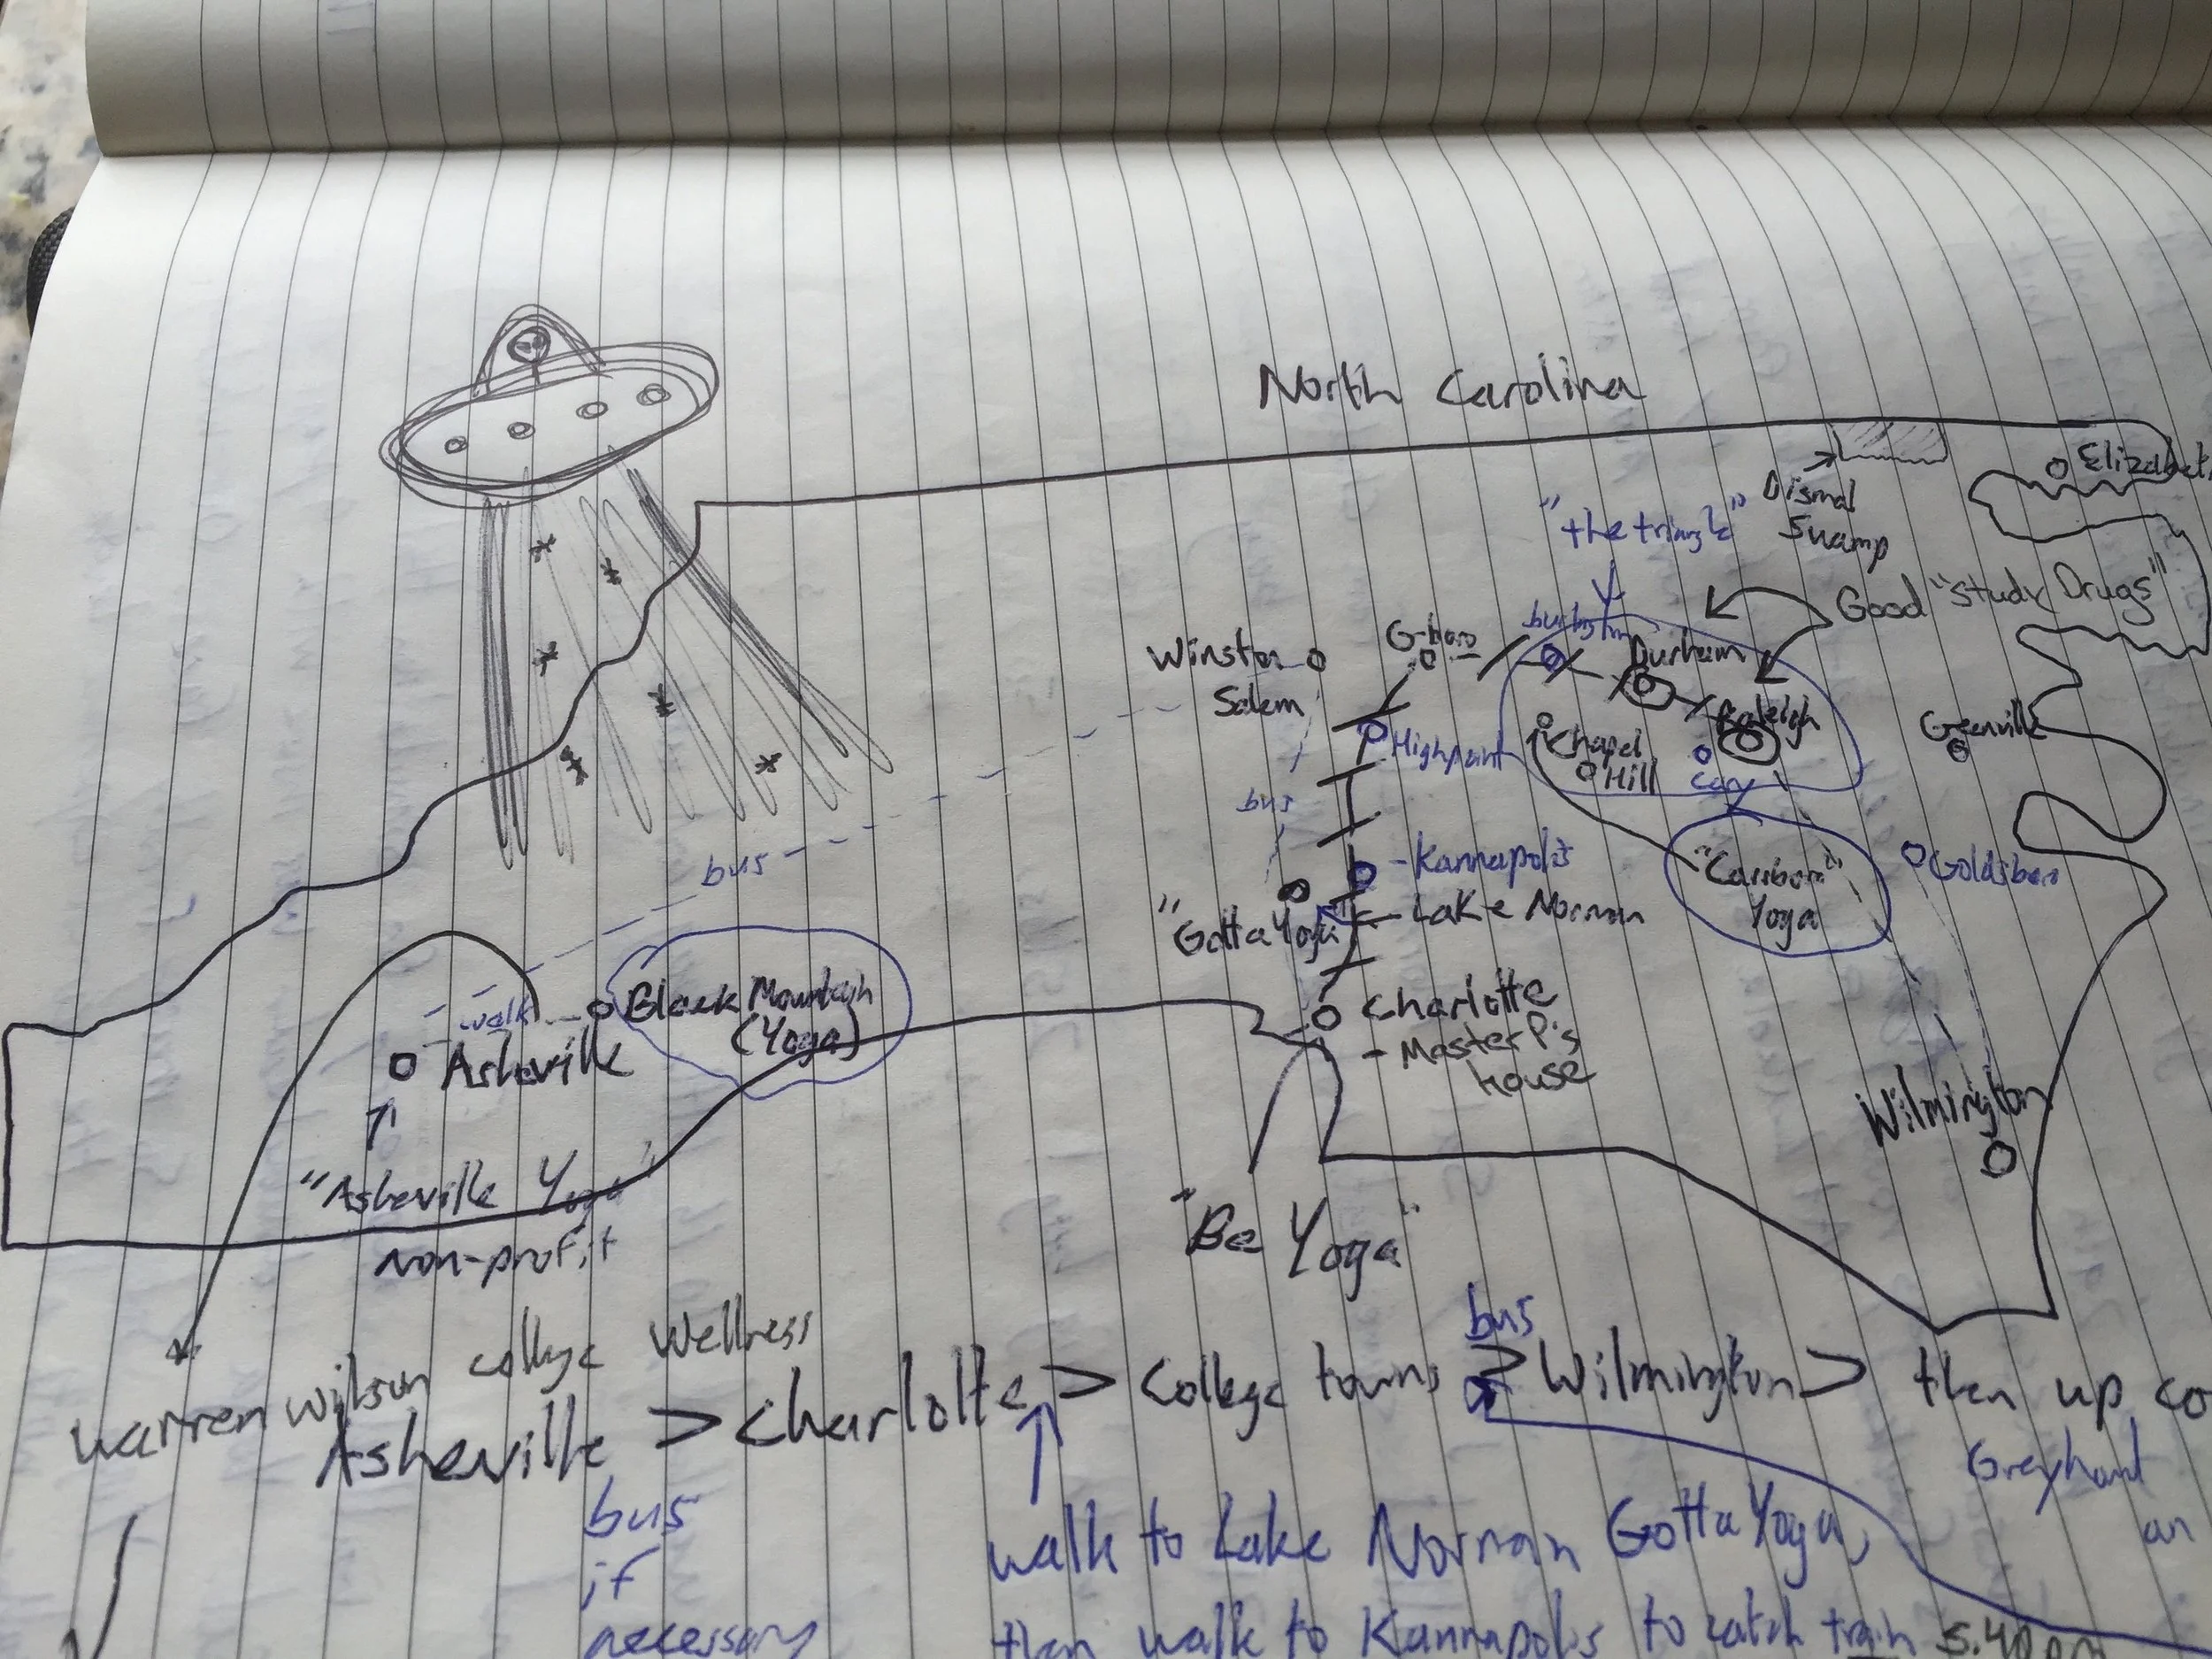 North Carolina
Elizabet
Dismal
Swamp
"the triangle"
Good "Study Drugs"
Winston
Salem
G-boro
Durham
Raleigh
Highpoint
Chapel
Hill
Cary
Greenville
bus
bus
-Kannapolis
Lake Norman
"Gotta Yoga"
Yoga
Goldsboro
walk
Black Mountain
(Yoga)
Asheville
Charlotte
- Master P's
house
Wilmington
"Asheville Yoga"
non-profit
"Be Yoga"
Warren Wilson College Wellness
bus
Asheville > Charlotte > College towns > Wilmington > then up co
Greyhound
an
bus
if
necessary
walk to Lake Norman Gotta Yoga,
then walk to Kannapolis to catch train 5:40pm